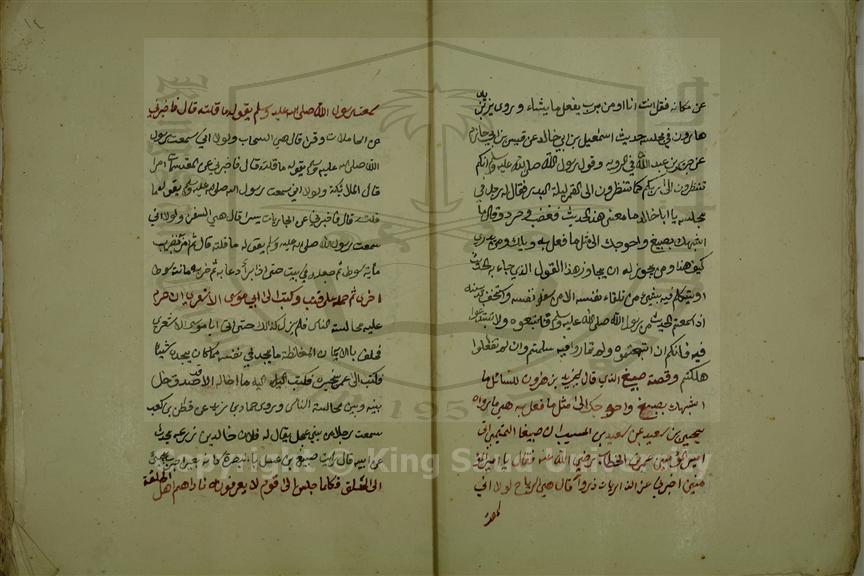 عن مكانه فقل انت انا اومن برب يفعل ما يشاء وروى يزيد بن
هارون في مجلسه حديث اسمعيل بن ابي خالد عن قيس بن ابي حازم
عن جرير بن عبد الله في الروية وقول رسول الله صلى الله عليه وسلم انكم
تنظرون الى ربكم كما تنظرون الى القمر ليلة البدر فقال له رجل في
مجلسه يا ابا خالد ما معنى هذا الحديث فغضب وحرد وقال ما
اشبهك بصبيغ واحوجك الى مثل ما فعل به ويلك ومن يدري
كيف هذا ومن يجوز له ان يجاوز هذا القول الذي جاء به الحديث
او يتكلم فيه بشيء من تلقاء نفسه الا من سفه نفسه واستخف بدينه
اذا سمعتم الحديث من رسول الله صلى الله عليه وسلم فاتبعوه ولا تبتدعوا
فيه فانكم ان اتبعتموه ولم تماروا فيه سلمتم وان لم تفعلوا
هلكتم وقصة صبيغ الذي قال يزيد بن هارون للسائل ما
اشبهك بصبيغ واحوجك الى مثل ما فعل به هي ما رواه
يحيى بن سعيد عن سعيد بن المسيب ان صبيغا التميمي اتى
امير المومنين عمر بن الخطاب رضي الله عنه فقال يا امير المو
منين اخبرني عن الذاريات ذروا قال هي الرياح لولا اني
سمعت رسول الله صلى الله عليه وسلم يقوله ما قلته قال فاخبرني
عن الحاملات وقرا قال هي السحاب ولولا اني سمعت رسول
الله صلى الله عليه وسلم يقوله ما قلته قال فاخبرني عن المقسمات امرا
قال الملائكة ولولا اني سمعت رسول الله صلى الله عليه وسلم يقوله ما
قلته قال فاخبرني عن الجاريات يسرا قال هي السفن ولولا اني
سمعت رسول الله صلى الله عليه وسلم يقوله ما قلته قال ثم امر به فضرب
ماية سوط ثم جعله في بيت حتى اذا برأ دعا به ثم ضربه ماية سوط
اخرى ثم حمله على قتب وكتب الى ابي موسى الاشعري ان حرم
عليه مجالسة الناس فلم يزل كذلك حتى اتى ابا موسى الاشعري
فحلف بالايمان المغلظة ما يجد في نفسه مما كان يجده شيئا
فكتب الى عمر يخبره فكتب اليه ما اخاله الا قد صدق خل
بينه وبين مجالسة الناس وروى حماد بن زيد عن قطن بن كعب
سمعت رجلا من بني عجل يقال له فلان خالد بن زرعة يحدث
عن ابيه قال رايت صبيغ بن عسل بالبصرة كانه بعير اجرب يجيء
الى الحلق فكلما جلس الى قوم لا يعرفونه ناداهم اهل الحلقة
Copyright © King Saud University
1957